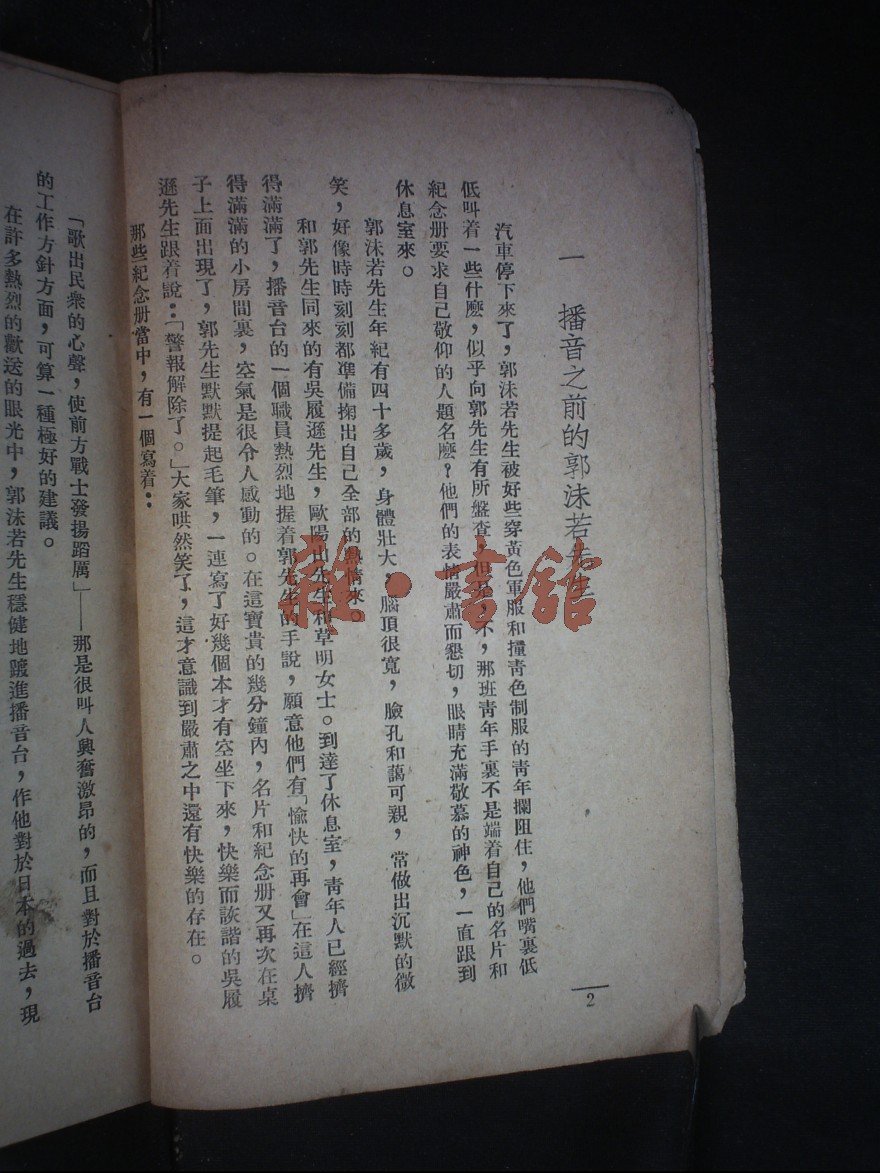 一　播音之前的郭沫若先生
汽車停下來了，郭沫若先生被好些穿黃色軍服和撞靑色制服的靑年攔阻住，他們嘴裏低
低叫着一些什麽，似乎向郭先生有所盤查，但是，不，那班靑年手裏不是端着自己的名片和
紀念册要求自己敬仰的人題名麽？他們的表情嚴肅而懇切，眼睛充滿敬慕的神色，一直跟到
休息室來。
郭沫若先生年紀有四十多歲，身體壯大，腦頂很寬，臉孔和藹可親，常做出沉默的微
笑，好像時時刻刻都準備掬出自己全部的熱情來。
和郭先生同來的有吳履遜先生，歐陽山先生和草明女士。到達了休息室，靑年人已經擠
得滿滿了，播音台的一個職員熱烈地握着郭先生的手說，願意他們有「愉快的再會」在這人擠
得滿滿的小房間裏，空氣是很令人感動的。在這寶貴的幾分鐘內，名片和紀念册又再次在桌
子上面出現了，郭先生默默提起毛筆，一連寫了好幾個本才有空坐下來，快樂而詼諧的吳履
遜先生跟着說：「警報解除了。」大家哄然笑了，這才意識到嚴肅之中還有快樂的存在。
那些紀念册當中，有一個寫着：
「歌出民衆的心聲，使前方戰士發揚蹈厲」——那是很叫人興奮激昂的，而且對於播音台
的工作方針方面，可算一種極好的建議。
在許多熱烈的歡送的眼光中，郭沫若先生穩健地踱進播音台，作他對於日本的過去，現
2
雜·書館